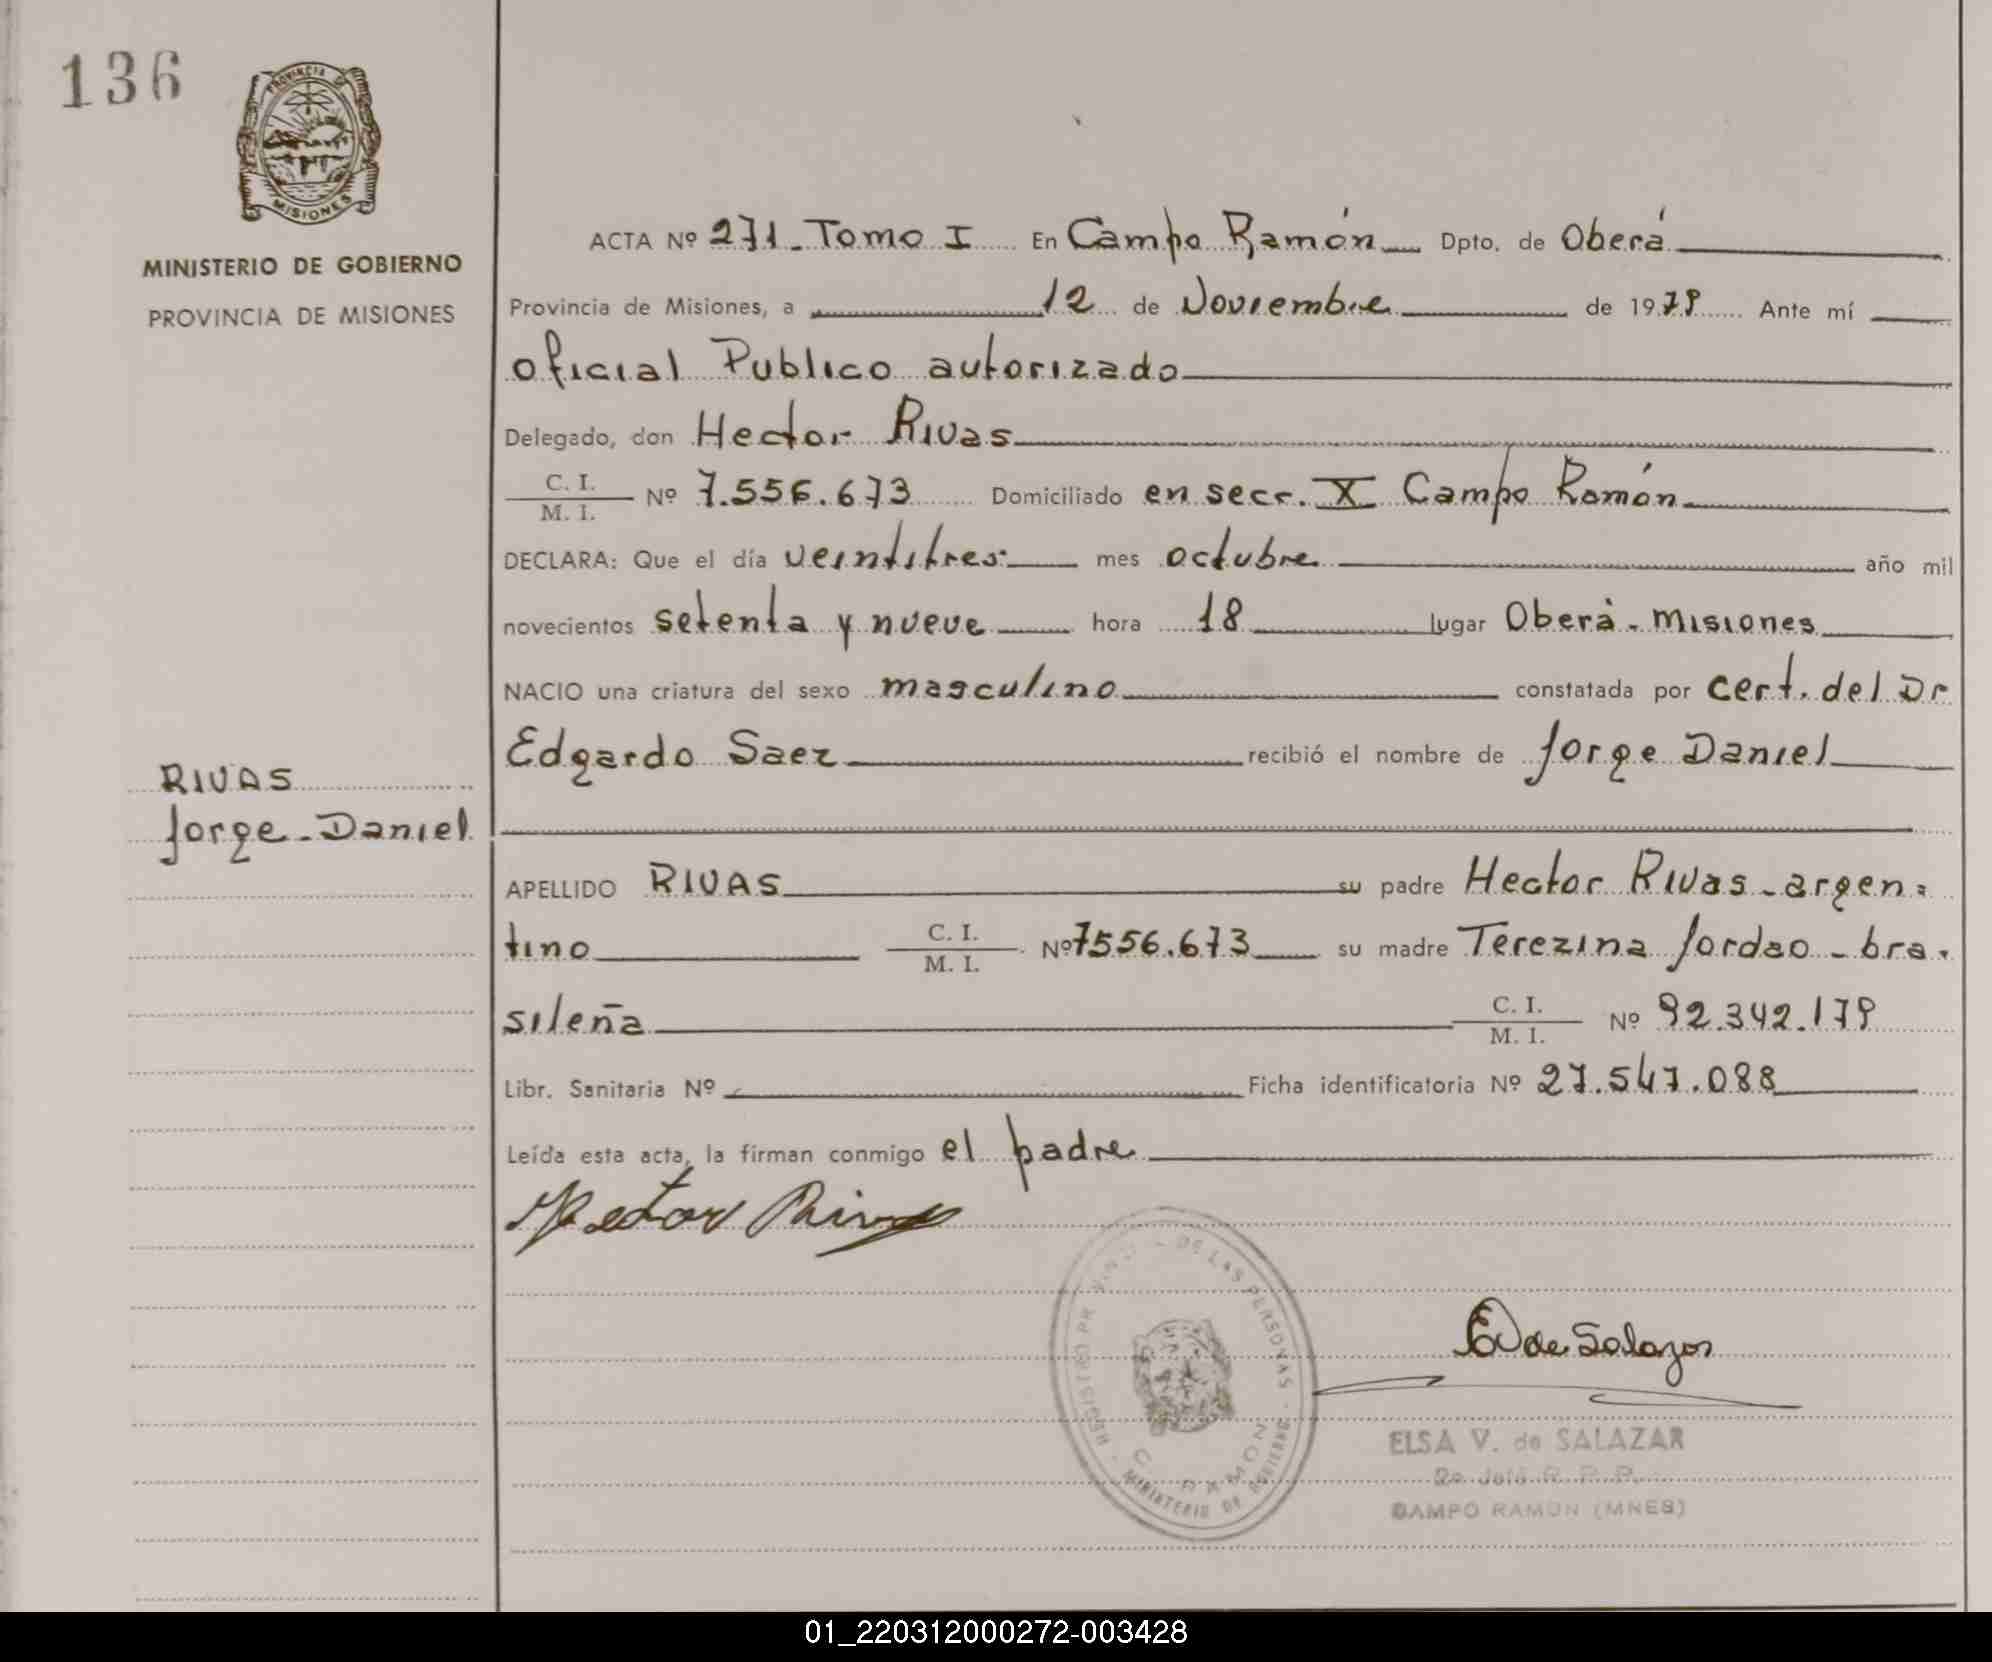 136
PROVINCIA DE
MISIONES
MINISTERIO DE GOBIERNO
PROVINCIA DE MISIONES
ACTA Nº 271 - Tomo I En Campo Ramón Dpto. de Oberá
Provincia de Misiones, a 12 de Noviembre de 1979 Ante mí
oficial Publico autorizado
Delegado, don Hector Rivas
C. I. / M. I. Nº 7.556.673 Domiciliado en secc. X Campo Ramón
DECLARA: Que el día veintitres mes octubre año mil
novecientos setenta y nueve hora 18 lugar Oberá - Misiones
NACIO una criatura del sexo masculino constatada por cert. del Dr
Edgardo Saez recibió el nombre de Jorge Daniel
RIVAS
Jorge - Daniel
APELLIDO RIVAS su padre Hector Rivas - argen=
tino C. I. / M. I. Nº 7556.673 su madre Terezina Jordao - bra-
sileña C. I. / M. I. Nº 92.342.179
Libr. Sanitaria Nº Ficha identificatoria Nº 27.547.088
Leída esta acta, la firman conmigo el padre
Hector Rivas
REGISTRO DE LAS PERSONAS
RAMON
MINISTERIO DE GOBIERNO
EV de Salazar
ELSA V. de SALAZAR
2o Jefe R. P. P.
CAMPO RAMON (MNES)
01_220312000272-003428